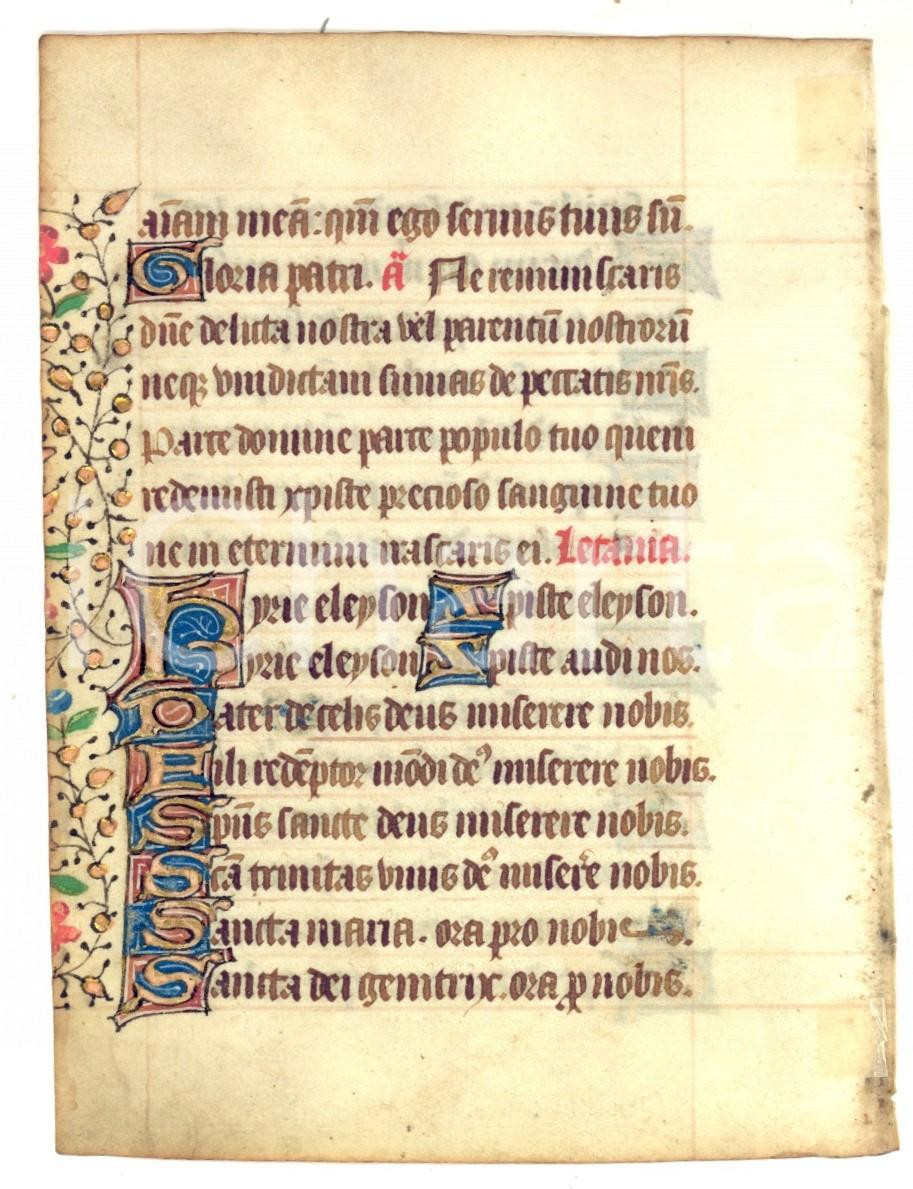 aīam meā: qm̄ ego seruus tuus sū.
Gloria patri. ā Ne reminiscaris
dn̄e delicta nostra vel̄ parentū nostrorū
neqꝫ vindictam sumas de peccatis nr̄is.
Parce domine parce populo tuo quem
redemisti xp̄iste precioso sanguine tuo
ne in eternum irascaris ei. Letania.
Kyrie eleyson Xpiste eleyson.
Kyrie eleyson Xpiste audi nos.
Pater de celis deus miserere nobis.
Fili redēptor mōdi deꝰ miserere nobis.
Spūs sancte deus miserere nobis.
Scā trinitas vnus deꝰ miserē nobis.
Sancta maria. ora pro nobis.
Sancta dei genitrix. ora ꝑ nobis.